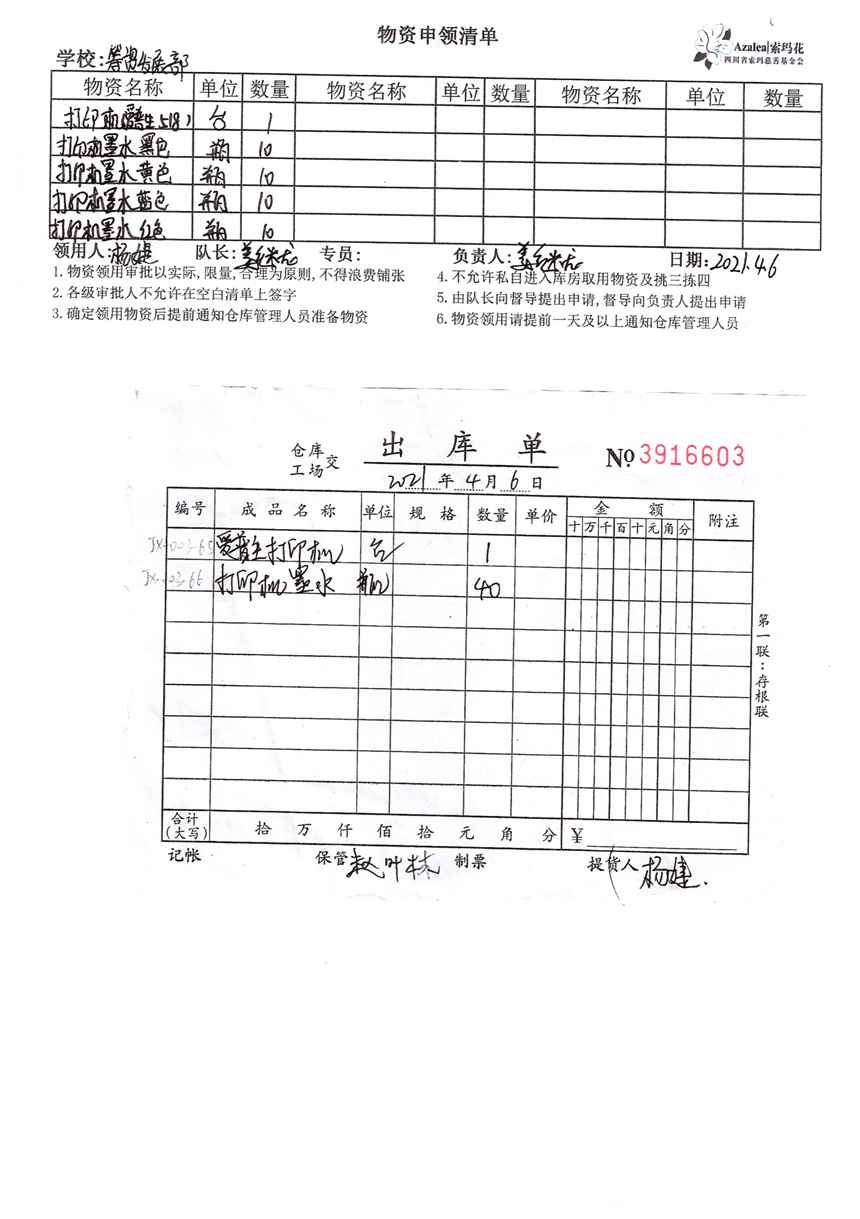 物资申领清单
Azalea|索玛花
四川省索玛慈善基金会
学校:筹资发展部
物资名称 单位 数量 物资名称 单位 数量 物资名称 单位 数量
打印机(爱普生518) 台 1
打印机墨水黑色 瓶 10
打印机墨水黄色 瓶 10
打印机墨水蓝色 瓶 10
打印机墨水红色 瓶 10
领用人:杨婕 队长: 专员: 负责人: 日期:2021.4.6
1.物资领用审批以实际,限量,合理为原则,不得浪费铺张
2.各级审批人不允许在空白清单上签字
3.确定领用物资后提前通知仓库管理人员准备物资
4.不允许私自进入库房取用物资及挑三拣四
5.由队长向督导提出申请,督导向负责人提出申请
6.物资领用请提前一天及以上通知仓库管理人员
仓库
工场 交 出库单 № 3916603
2021年4月6日
编号 成品名称 单位 规格 数量 单价 金额 附注
十万千百十元角分
JX-00365 爱普生打印机 台 1
JX-00366 打印机墨水 瓶 40
第一联:存根联
合计(大写) 拾 万 仟 佰 拾 元 角 分 ¥
记帐 保管 制票 提货人 杨婕.